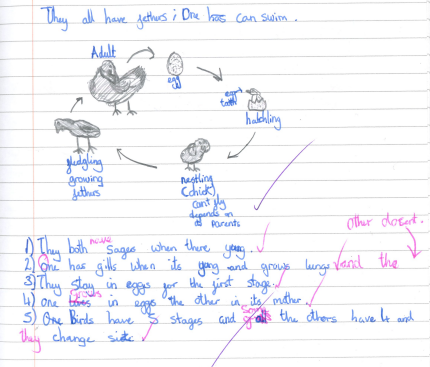 They all have fethers ; One has can swim.
Adult
egg
egg tooth
hatchling
nestling
(chick)
can't fly
depends on
its parents
fledgling
growing
fethers
other dosent.
1) They both have Sages when there yong.
2) One has gills when its yong and grows lungs and the
3) They stay in eggs for the first stage.
4) One grows in eggs the other in its mother.
5) One Birds have 5 stages and the others have 4 and
they change